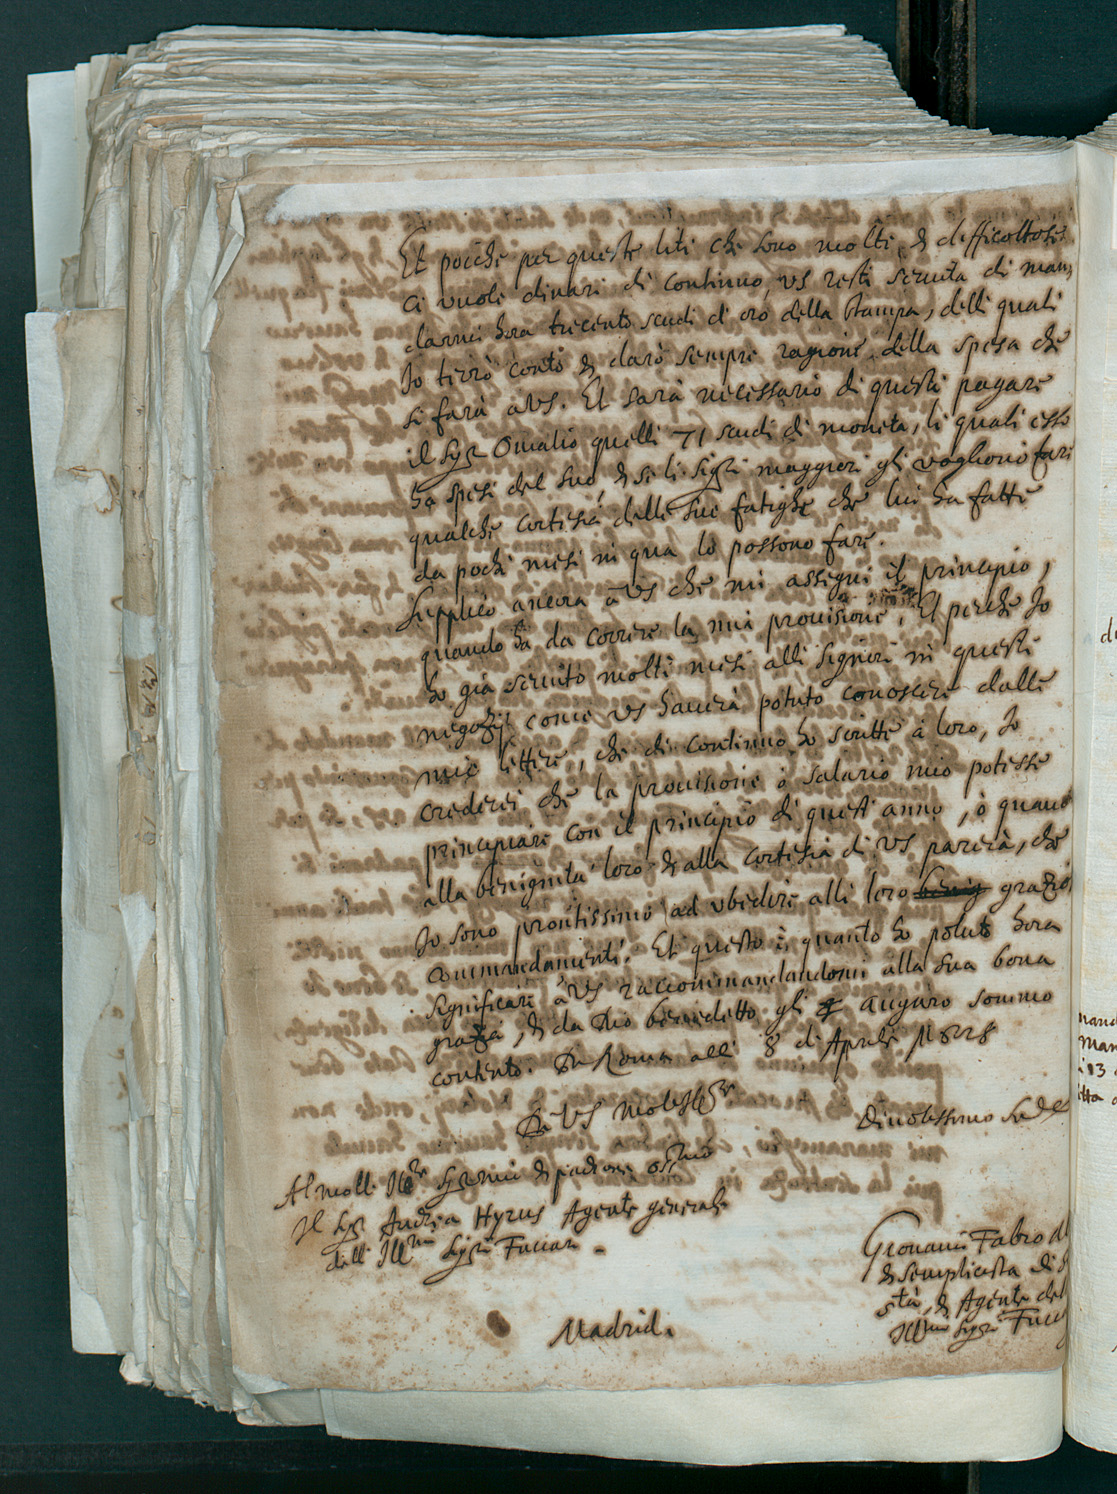 Et poiche per queste liti che sono molti, & difficoltose
ci vuole dinari di continuo, VS resti servita di man
darmi hora trecento scudi d'oro della stampa, delli quali
Io terrò conto & darò sempre ragione della spesa che
si farà à VS. Et sarà necessario di questi pagare
il Sigr Omalio quelli 71 scudi di moneta, li quali esso
ha spesi del suo, & se li Sigri maggiori gli vogliono fare
qualche cortesia delle sue fatighe che lui ha fatte
da pochi mesi in qua lo possono fare.
Supplico ancora à VS che mi assegni il principio,
quando ha da correre la mia provisione, Et perche Io
ho già servito molti mesi alli Signori in questi
negozij come VS haverà potuto conoscere dalle
mie lettere, che di continuo ho scritte à loro, Io
crederei che la provisione ò salario mio potesse
principiare con il principio di quest'anno, ò quando
alla benignità loro & alla cortesia di VS parerà, che
Io sono prontissimo ad ubedire alli loro benig grazio
commandamenti. Et questo è quanto ho potuto hora
significare à VS raccommandandomi alla sua bona
grazia, & da Dio benedetto gli auguro sommo
contento. Da Roma alli 8 di Aprile 1628
Da VS Molt'Illre
Divotissimo
Al molt'Illre Sigr mio & padrone ossmo
Il Sigr Andrea Hyrus Agente generale
dell'Illmi Sigri Fuccari
Madrid.
Giovanni Fabro
& semplicista di
stà, & Agente del
Illmi Sigri